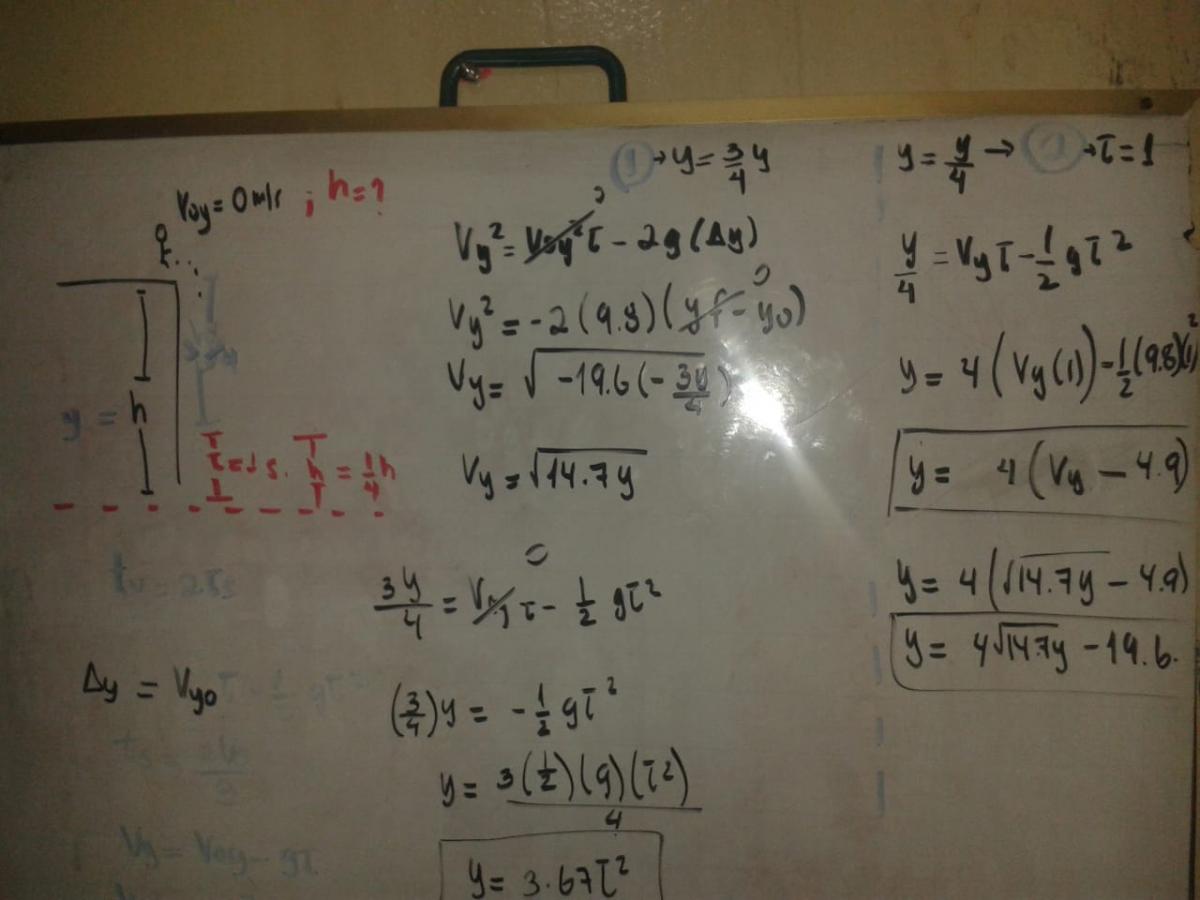 Voy = 0 m/s ; h = ?
y = h
t = 1 s. h = 1/4 h
Δy = Vyo
1 → y = 3/4 y
Vy² = Voy² t - 2g (Δy)
0
Vy² = -2 (9.8) (yf - yo)
0
Vy = √-19.6 (-3y/4)
Vy = √14.7y
0
3y/4 = t - 1/2 gt²
(3/4)y = -1/2 gt²
y = 3(1/2)(g)(t²)/4
y = 3.67t²
y = y/4 → 1 → t = 1
y/4 = Vy t - 1/2 gt²
y = 4 (Vy (1)) - 1/2 (9.8)(1)²
y = 4 (Vy - 4.9)
y = 4 (√14.7y - 4.9)
y = 4√14.7y - 19.6.